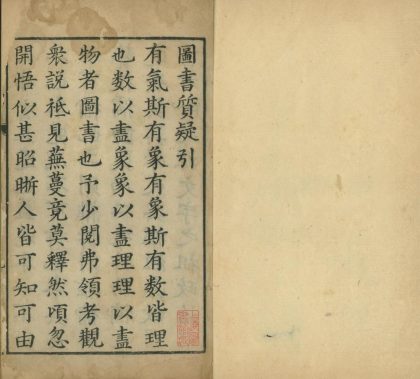 圖書質疑引
有氣斯有象有象斯有數皆理
也数以盡象象以盡理理以盡
物者圖書也予少閱弗領考觀
衆説祗見蕪蔓竟莫釋然頃忽
開悟似甚昭晣人皆可知可由